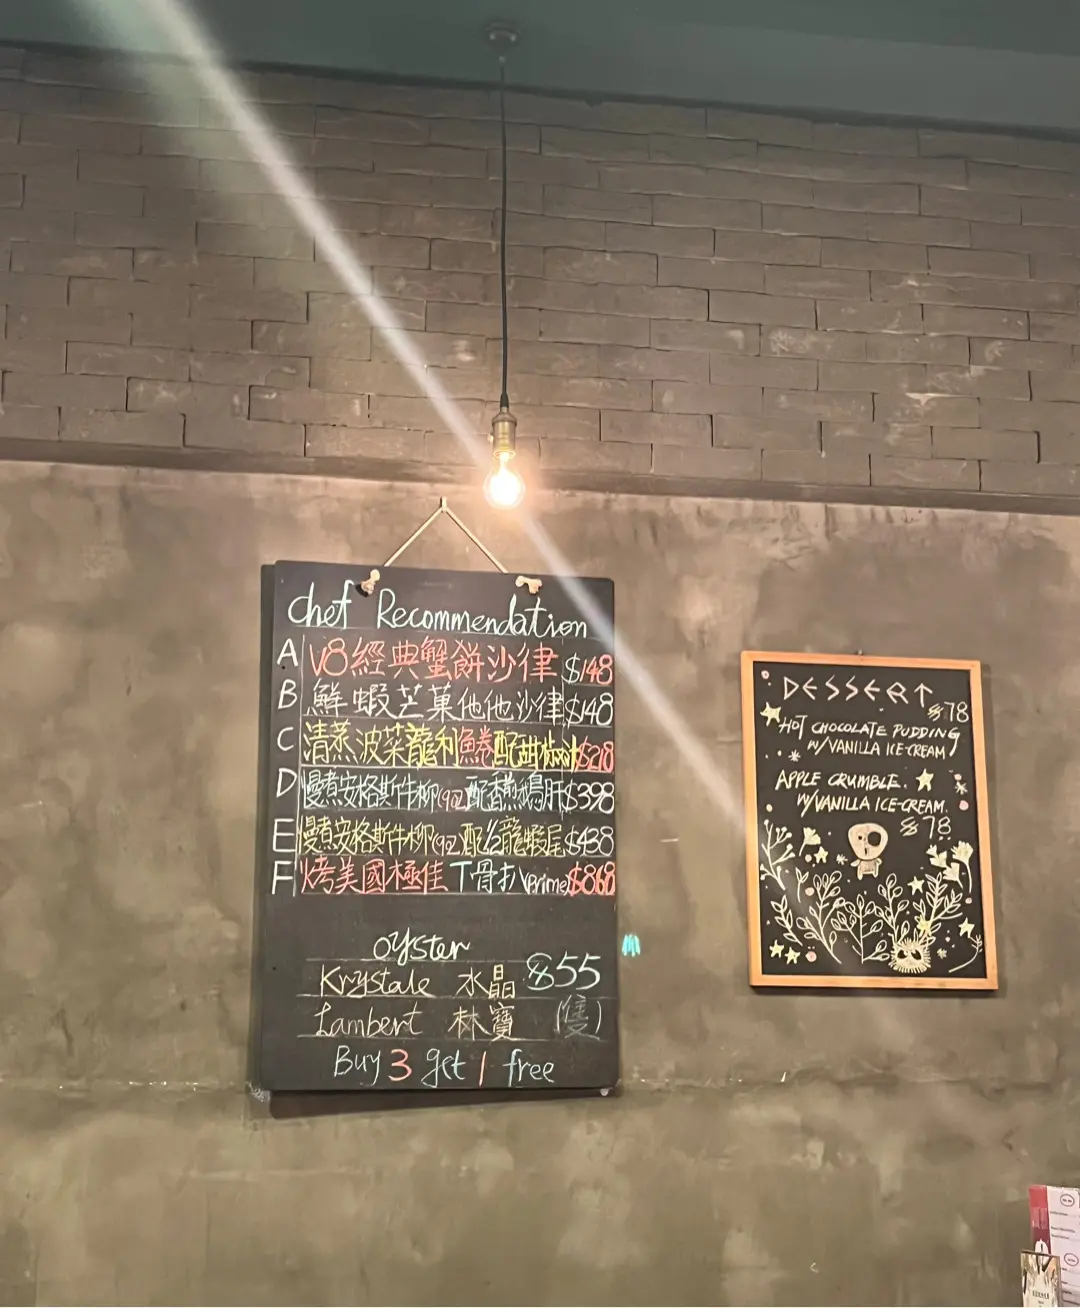 Chef Recommendation
A V8經典蟹餅沙律 $148
B 鮮蝦芒菓他他沙律 $148
C 清蒸波菜龍利魚卷配甜椒汁 $218
D 慢煮安格斯牛柳(9oz)配香煎鵝肝 $398
E 慢煮安格斯牛柳(9oz)配1/2龍蝦尾 $438
F 烤美國極佳T骨扒(prime) $868
oyster
Krystale 水晶 $55
Lambert 林寶 (隻)
Buy 3 get 1 free
DESSERT
$78
HOT CHOCOLATE PUDDING
W/VANILLA ICE-CREAM
APPLE CRUMBLE.
W/VANILLA ICE-CREAM.
$78